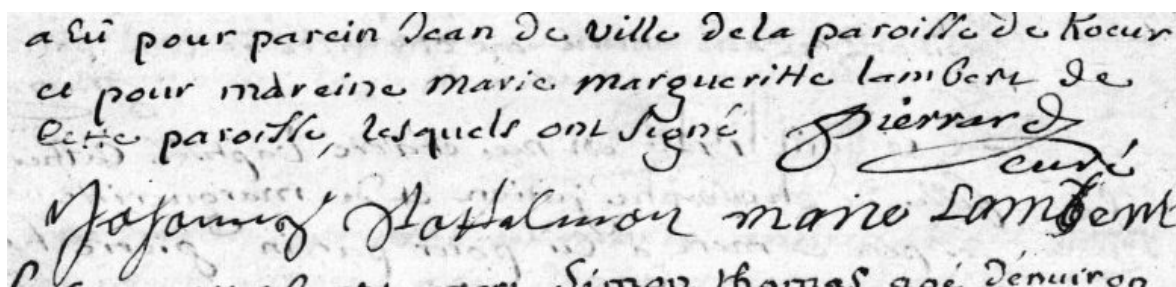 a eü pour parein Jean de ville dela paroisse de Koeur
et pour mareine marie margueritte lambert de
cette paroisse, lesquels ont signé Pierrard
curé
marie Lambert
Simon thomas agé d'enuiron